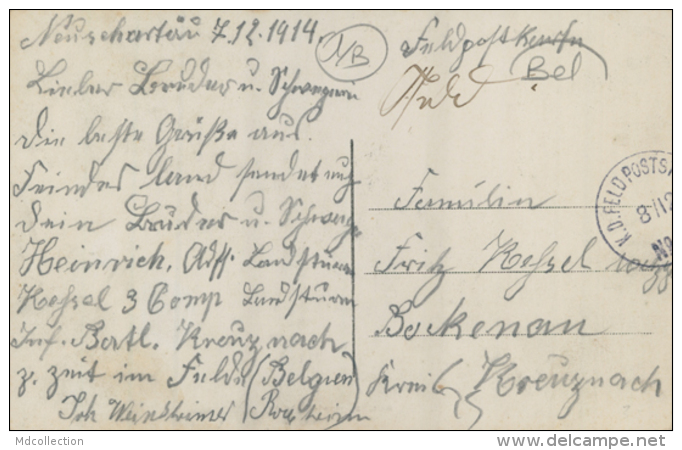 Neuschartäu 7.12.1914.
Lieber Bruder u. Schwegerin
die beste Grüße aus
Feindes land sendet euch
dein Bruder u. Schwager
Heinrich, Adſ. Landsturm
Kessel 3 Comp Landsturm
Inf. Batl. Kreuznach
z. zeit im Felde (Belgien)
Joh Weinsheimer
N/B
Feldpostkarte
Bel
Familin
Fritz Kessel
Bockenau
Kreis Kreuznach
K.D.FELDPOSTS
8/12
Mdcollection
delcampe.net